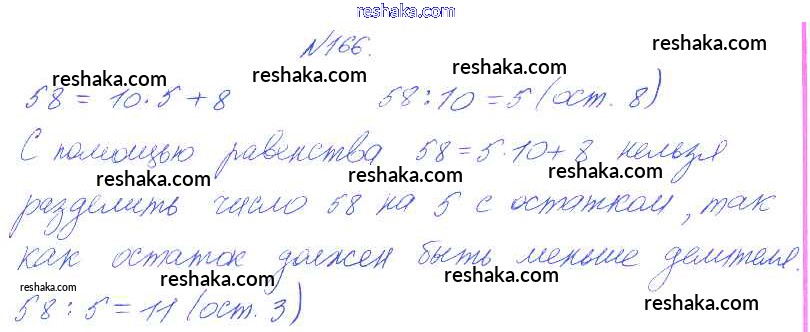 reshaka.com
№166.
reshaka.com
reshaka.com reshaka.com reshaka.com
58 = 10·5 + 8 58 : 10 = 5 (ост. 8)
С помощью равенства 58 = 5·10 + 8 нельзя
reshaka.com reshaka.com reshaka.com
разделить число 58 на 5 с остатком, так
как остаток должен быть меньше делителя.
reshaka.com reshaka.com reshaka.com
58 : 5 = 11 (ост. 3)